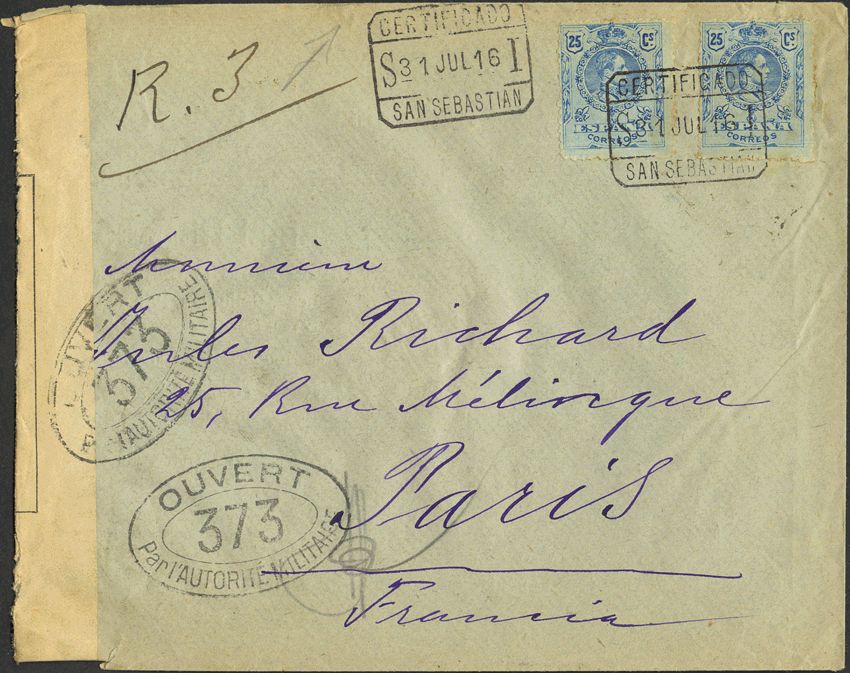 CERTIFICADO
S 31 JUL 16 I
SAN SEBASTIAN
25 Cs
CORREOS
25 Cs
CORREOS
CERTIFICADO
S 31 JUL 16 I
SAN SEBASTIAN
R. 3
Monsieur
Jules Richard
25, Rue Mélingue
Paris
Francia
OUVERT
373
Par l'AUTORITÉ MILITAIRE
OUVERT
373
Par l'AUTORITÉ MILITAIRE